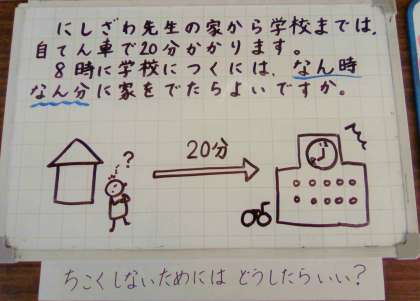 にしざわ先生の家から学校までは、
自てん車で20分かかります。
8時に学校につくには、なん時
なん分に家をでたらよいですか。
?
20分
ちこくしないためには どうしたらいい?